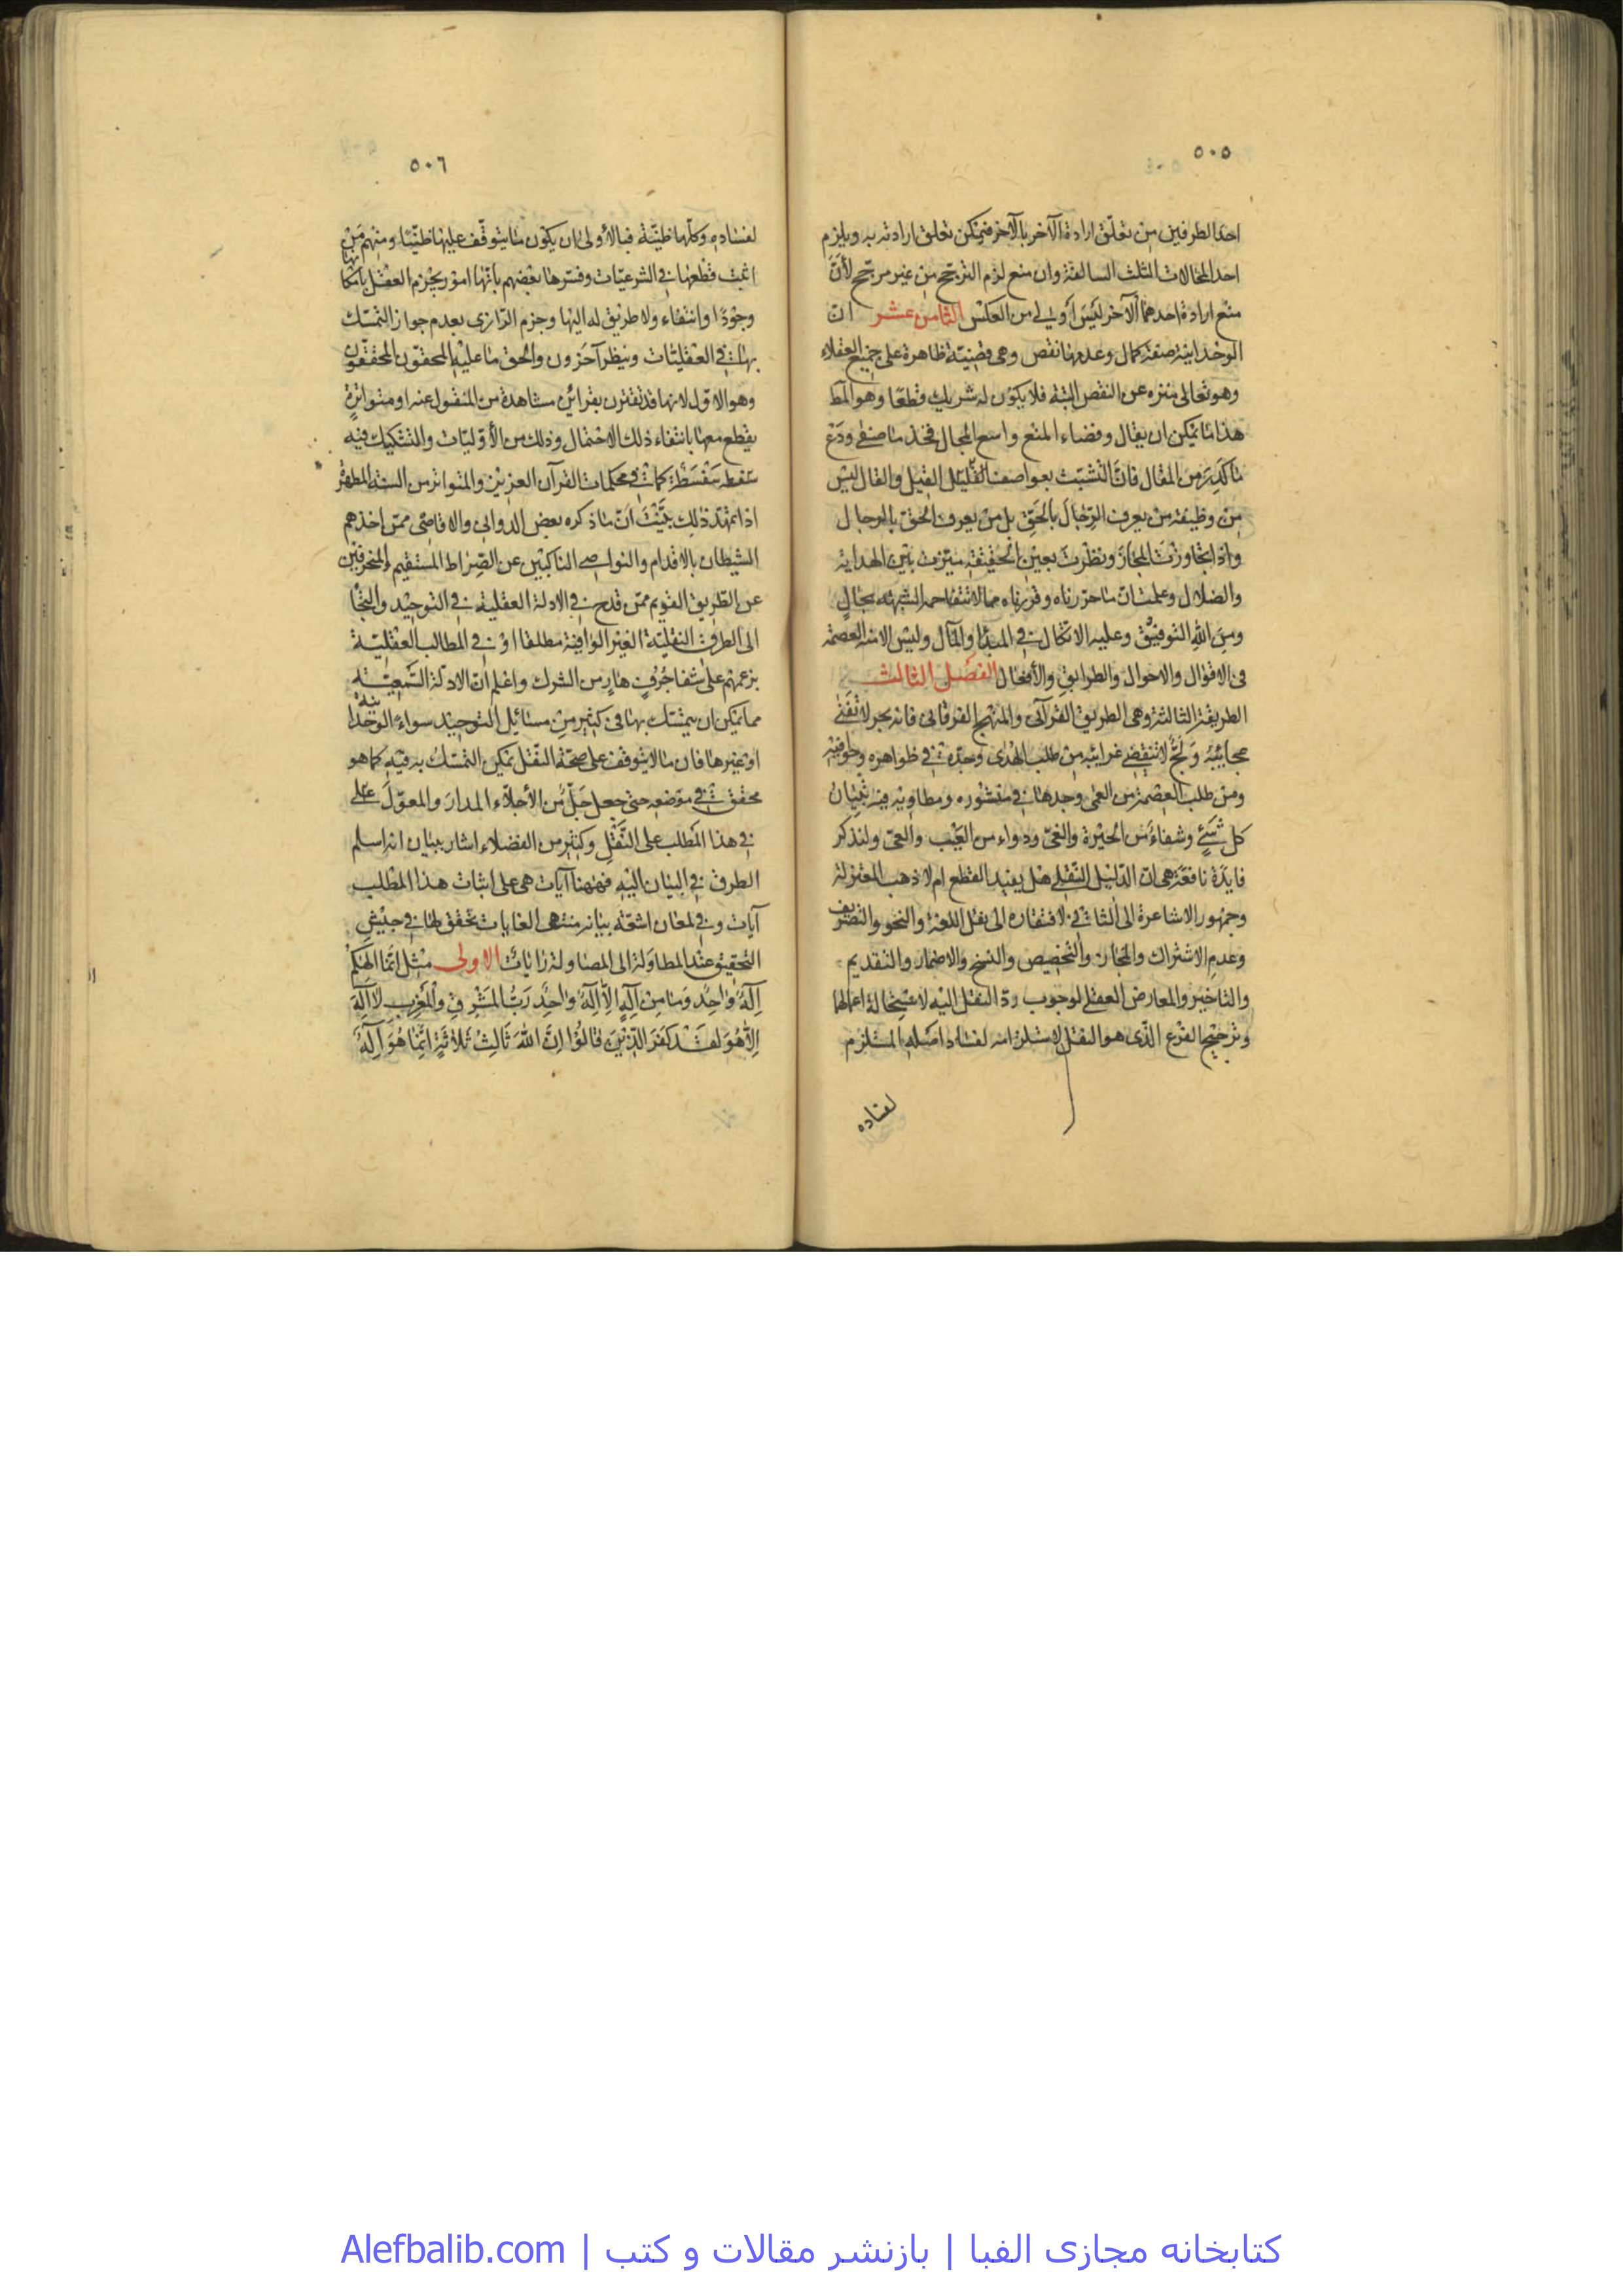 ٥٠٥
احد الطرفين من تعلّق ارادة الآخر بالآخر فيمكن تعلق ارادته به ويلزم
احد المحالات الثلث السالفة وان منع لزم الترجّح من غير مرجّح لأنّ
منع ارادة احدهما الآخر ليس أولى من العكس الثامن عشر ان
الوحدانية صفة كمال وعدمها نقص وهى قضيّة ظاهرة على جميع العقلاء
وهو تعالى منزه عن النقص البتة فلا يكون له شريك قطعًا وهو المط
هذا ما يمكن ان يقال وفضاء المنع واسع المجال فخذ ما صفى ودع
ما كدر من المقال فانّ التشبّث بعواصف القليل القيل والقال ليس
من وظيفة من يعرف الرّجال بالحقّ بل من يعرف الحق بالرجال
واذا تجاوزت المجاز ونظرت بعين الحقيقة ميّزت بين الهداية
والضلال وعلمت انّ ما حرّرناه وقررناه مما لا تنفاحه الشبهة بحالٍ
ومن الله التوفيق وعليه الاتكال فى المبدأ والمآل وليس الا منه العصمة
فى الاقوال والاحوال والطرايق والأفعال الفصل الثالث
الطريقة الثالثة وهى الطريق القرآنى والمنهج الفرقانى فانه بحر لا تفنى
عجائبه ولجّ لا تنقضى غرايبه من طلب الهدى وجده فى ظواهره وخوافيه
ومن طلب العصمة من العمى وجدها فى منشوره ومطاويه فيه تبيان
كل شىءٍ وشفاء من الحيرة والغىّ ودواء من العيب والعىّ ولنذكر
فايدة نافعة هى ان الدّليل النّقلى هل يفيد القطع ام لا ذهب المعتزلة
وجمهور الاشاعرة الى الثانى لافتقاره الى نقل اللغة والنحو والتصريف
وعدم الاشتراك والمجاز والتخصيص والنسخ والاضمار والتقديم
والتاخير والمعارض العقلى لوجوب ردّ النقل اليه لاستحالة اعمالهما
وترجيح الفرع الّذى هو النقل لاستلزامه لفساد اصله المستلزم
لفساده
٥٠٦
لفساده وكلّها ظنيّة فبالأولى ان يكون ما يتوقّف عليها ظنّيّا ومنهم من
اثبت قطعها فى الشرعيّات وفسّرها بعضهم بأنها امور يجزم العقل بامكانها
وجودًا وانتفاء ولا طريق له اليها وجزم الرّازى بعدم جواز التمسّك
بها فى العقليّات ونظر آخرون والحق ما عليه المحقّون المحققون
وهو الاوّل لانها قد تقترن بقرائن مشاهدة من المنقول عنه او متواترة
يقطع معها بانتفاء ذلك الاحتمال وذلك من الأوّليّات والتشكيك فيه
سفطه سفسطة كما فى محكمات القرآن العزيز والمتواتر من السنة المطهرة
اذا تمهّد ذلك تبيّنت انّ ما ذكره بعض الدوانى والاقاصى ممّن اخذهم
الشيطان بالاقدام والنواصى الناكبين عن الصّراط المستقيم المنحرفين
عن الطّريق القويم ممّن قدح فى الادلة العقلية فى التوحيد والتجأ
الى الطرق النقليّة الغير الوافية مطلقا او فى المطالب العقليّة
بزعمهم على شفا جرفٍ هارٍ من الشرك واعلم انّ الادلّة السّمعيّة
مما يمكن ان يتمسّك بها فى كثير من مسائل التوحيد سواء الوحدانية
او غيرها فان ما لا يتوقف على صحّة النّقل يمكن التمسّك به فيه كما هو
محقق فى موضعه حتى جعل جلّ من الأجلّاء المدار والمعوّل على
فى هذا المطلب على النّقل وكثير من الفضلاء اشار ببيان انه اسلم
الطرق فى البيان اليه فههنا آيات هى على اثبات هذا المطلب
آيات وفى لمعان اشعّة بيانه منتهى الغايات تخفق لها فى جيش
التحقيق عند المطاولة الى المصاولة رايات الاولى مثل انّما الهكم
إلهٌ واحدٌ وما من إلهٍ إلّا إلهٌ واحدٌ ربّ المشرق والمغرب لا إله
إلّا هو لقد كفر الّذين قالوا إنّ الله ثالث ثلاثةٍ انّما هو إلهٌ
کتابخانه مجازی الفبا | بازنشر مقالات و کتب | Alefbalib.com